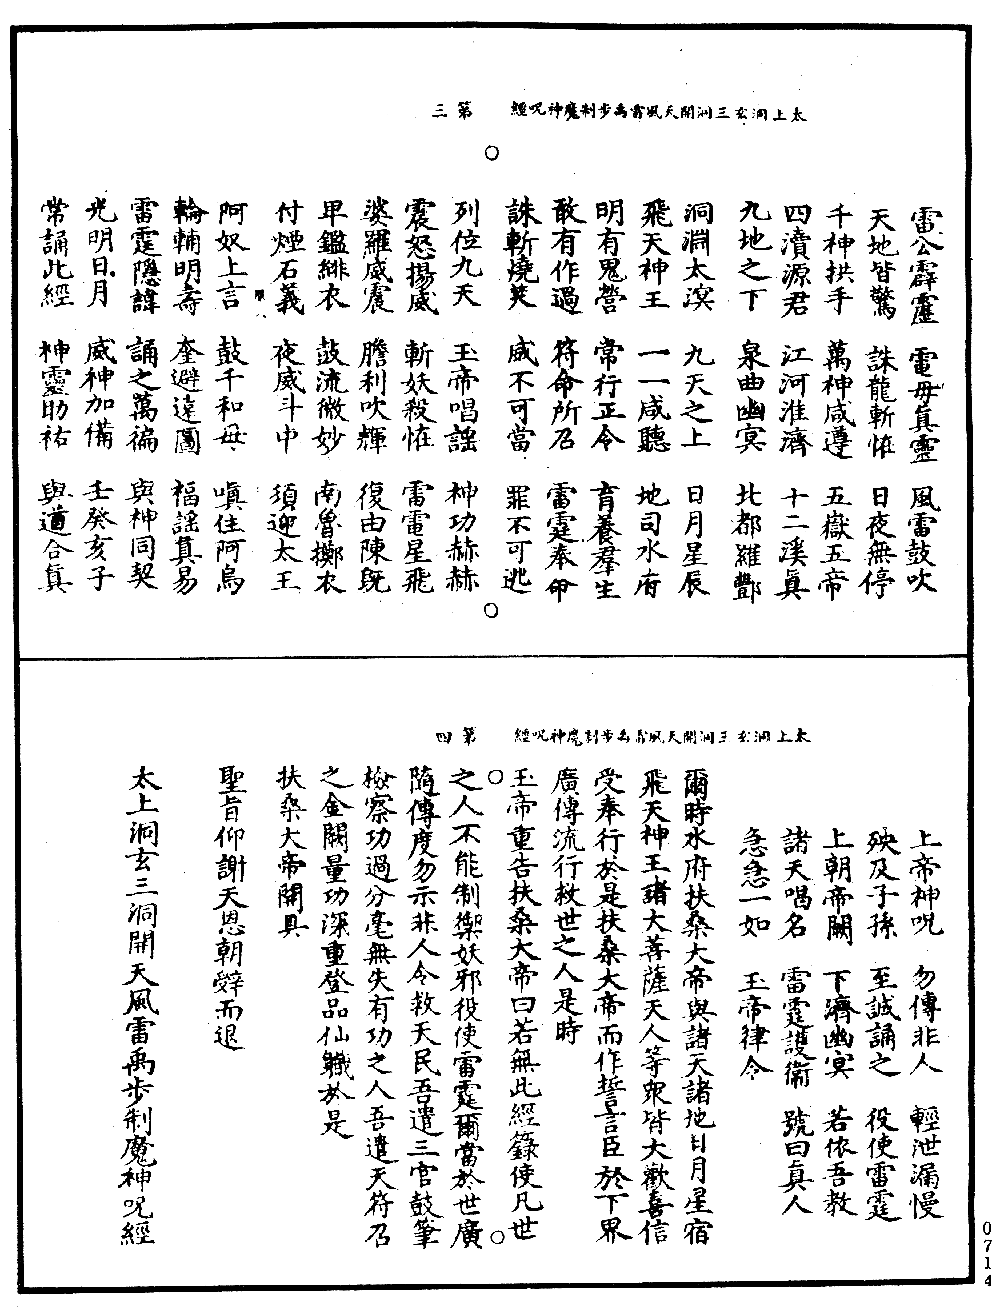 太上洞玄三洞開天風雷禹步制魔神咒經　第三
雷公霹靂　電母真靈　風雷鼓吹
天地皆驚　誅龍斬怪　日夜無停
千神拱手　萬神咸遵　五嶽五帝
四瀆源君　江河淮濟　十二溪真
九地之下　泉曲幽冥　北都羅酆
洞淵太溟　九天之上　日月星辰
飛天神王　一一咸聽　地司水府
明有鬼營　常行正令　育養羣生
敢有作過　符命所召　雷霆奉命
誅斬燒焚　威不可當　罪不可逃
列位九天　玉帝唱謡　神功赫赫
震怒揚威　斬妖殺怪　雷雷星飛
婆羅威震　膽利吹輝　復由陳旣
甲鑑緋衣　鼓流微妙　南魯擲衣
付煙石義　夜威斗中　須迎太王
阿奴上言　鼓千和毋　嗔住阿烏
輪輔明壽　奎避違圖　福謡真易
雷霆隱諱　誦之萬徧　與神同契
光明日月　威神加備　壬癸亥子
常誦此經　神靈助祐　與道合真
太上洞玄三洞開天風雷禹步制魔神咒經　第四
上帝神咒　勿傳非人　輕泄漏慢
殃及子孫　至誠誦之　役使雷霆
上朝帝闕　下濟幽冥　若依吾教
諸天唱名　雷霆護衞　號曰真人
急急一如　玉帝律令
爾時水府扶桑大帝與諸天諸地日月星宿
飛天神王諸大菩薩天人等衆皆大歡喜信
受奉行於是扶桑大帝而作誓言臣於下界
廣傳流行救世之人是時
玉帝重告扶桑大帝曰若無此經籙使凡世
之人不能制禦妖邪役使雷霆爾當於世廣
隨傳度勿示非人令救天民吾遣三官鼓筆
檢察功過分毫無失有功之人吾遣天符召
之金闕量功深重登品仙職於是
扶桑大帝開具
聖旨仰謝天恩朝辭而退
太上洞玄三洞開天風雷禹步制魔神咒經
0714